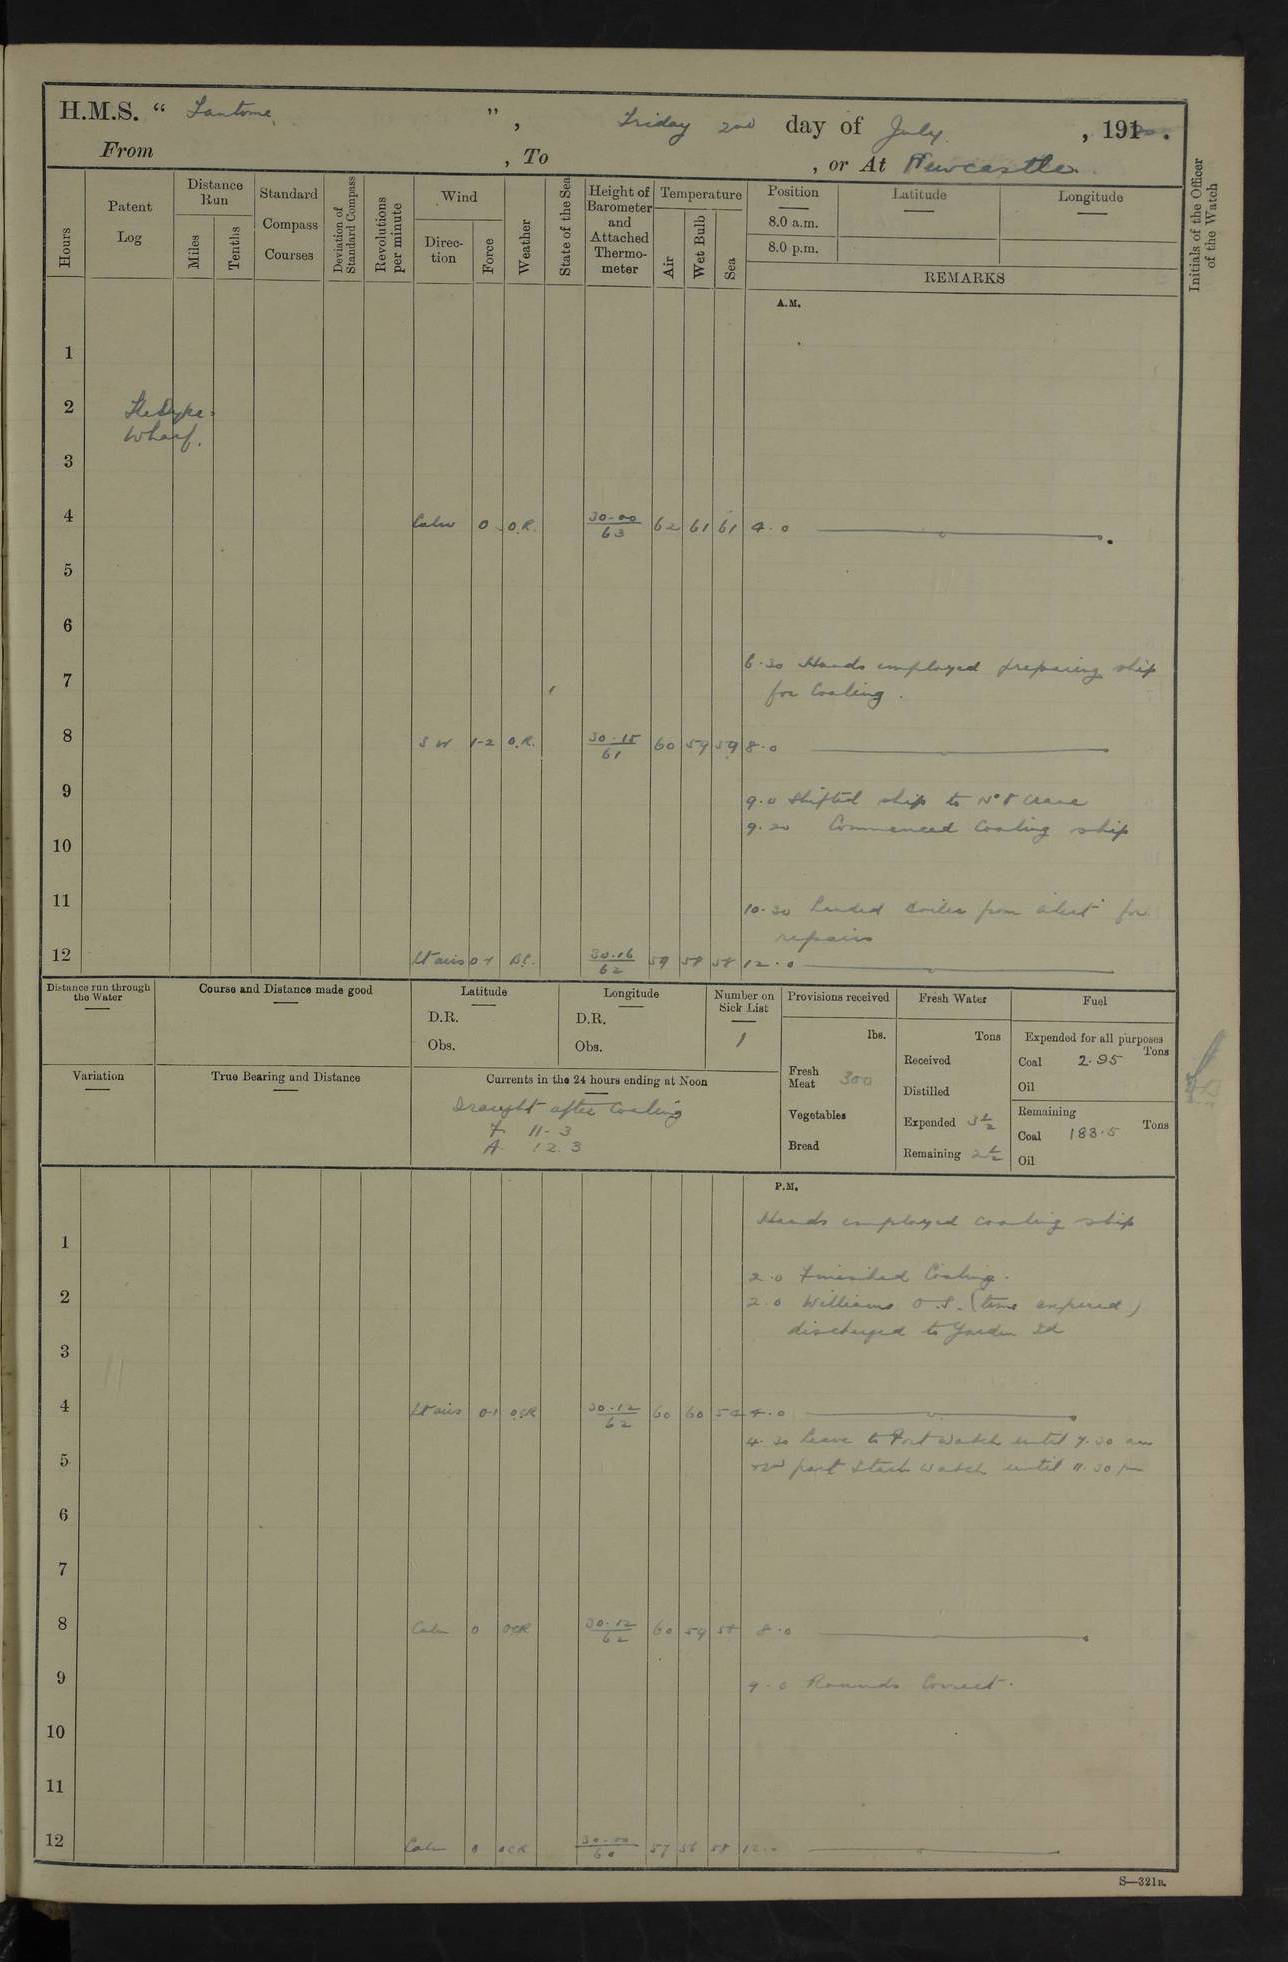 H.M.S. “ Fantome ” , Friday 2nd day of July , 191 .
From , To , or At Newcastle
Hours
Patent Log
Distance Run
Miles
Tenths
Standard Compass Courses
Deviation of Standard Compass
Revolutions per minute
Wind
Direction
Force
Weather
State of the Sea
Height of Barometer and Attached Thermometer
Temperature
Air
Wet Bulb
Sea
Position
8.0 a.m.
8.0 p.m.
Latitude
Longitude
REMARKS
Initials of the Officer of the Watch
A.M.
1
2 The Dyke
Wharf.
3
4 Calm 0 O.R. 30.00 63 62 61 61 4.0
5
6
6.30 Hands employed preparing ship
7 for Coaling.
8 S W 1-2 O.R. 30.15 61 60 59 59 8.0
9 9.0 Shifted ship to No 8 Crane
9.20 Commenced Coaling ship
10
11 10.30 Landed boiler from for
repairs
12 Lt airs 0-1 30.16 62 59 58 58 12.0
Distance run through the Water
Course and Distance made good
Latitude
D.R.
Obs.
Longitude
D.R.
Obs.
Number on Sick List
1
Provisions received
lbs.
Fresh Meat 300
Vegetables
Bread
Fresh Water
Tons
Received
Distilled
Expended 3½
Remaining 2½
Fuel
Expended for all purposes
Coal 2.95 Tons
Oil
Remaining
Coal 183.5 Tons
Oil
Variation
True Bearing and Distance
Currents in the 24 hours ending at Noon
Draught after Coaling
F 11-3
A 12.3
P.M.
Hands employed coaling ship
1
2.0 Finished Coaling.
2 2.0 Williams O.S. (time expired)
discharged to Garden Id
3
4 Lt airs 0-1 OCR 30.12 62 60 60 4.0
4.30 Leave to Port Watch until 7.30 am
5 2nd part Starb Watch until 11.30 pm
6
7
8 Calm 0 OCR 30.12 62 60 59 58 8.0
9 9.0 Rounds Correct.
10
11
12 Calm 0 OCR 60 57 56 58 12.0
S—321B.